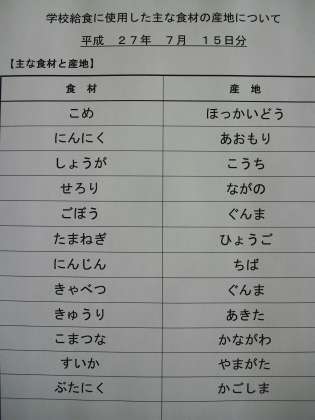 学校給食に使用した主な食材の産地について
平成　２７年　７月　１５日分
【主な食材と産地】
食　材　産　地
こめ　ほっかいどう
にんにく　あおもり
しょうが　こうち
せろり　ながの
ごぼう　ぐんま
たまねぎ　ひょうご
にんじん　ちば
きゃべつ　ぐんま
きゅうり　あきた
こまつな　かながわ
すいか　やまがた
ぶたにく　かごしま